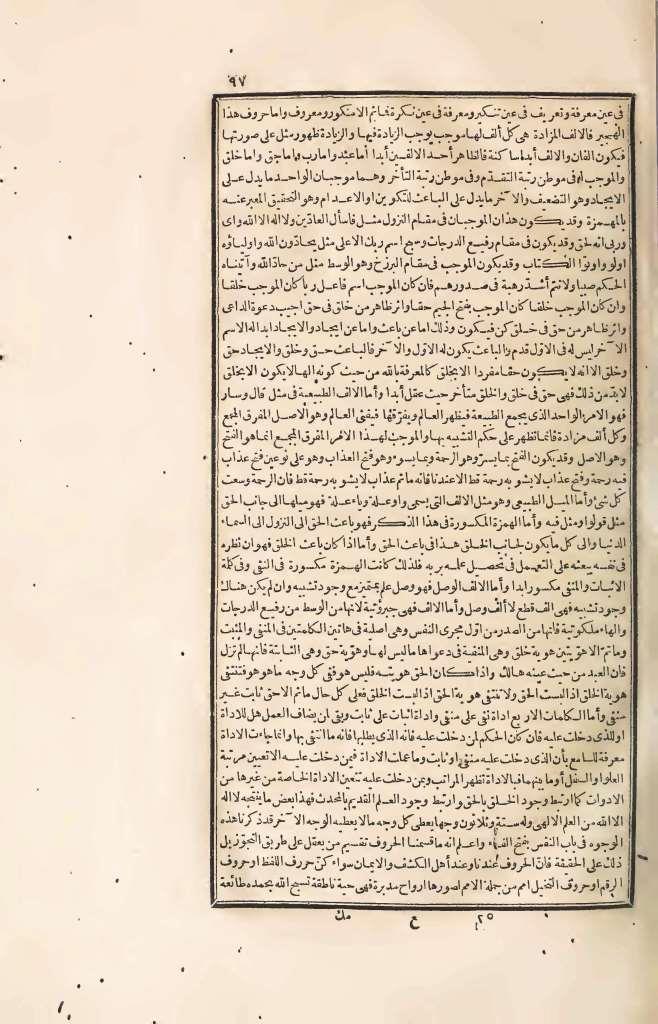 ٩٧
في عين معرفة وتعريف في عين تنكير ومعرفة في عين نكرة فاتم الا منكور ومعروف واما حروف هذا
الهجير فالالف المزادة هي كل ألف لها موجب يوجب الزيادة فيها والزيادة ظهور مثل على صورتها
فيكون الفان والالف أبدا ساكنة فالظاهر أحد الالفين أبدا أما عبد وامارب واما حق واما خلق
والموجب له في موطن رتبة التقدم وفي موطن رتبة التأخر وهما موجبان الواحد ما يدل على
الايجاد وهو التضعيف والآخر ما يدل على الباعث للتكوين او الاعدام وهو التحقيق المعبر عنه
بالهمزة وقد يكون هذان الموجبان في مقام النزول مثل فاسأل العادّين ولا اله الا الله واى
وربى انه لحق وقد يكون في مقام رفيع الدرجات وسبح اسم ربك الاعلى مثل يحادّون الله واولياؤه
اولوا واوتوا الكتاب وقد يكون الموجب في مقام البرزخ وهو الوسط مثل من حادّ الله وآتيناه
الحكم صبيا ولانتم أشدّ رهبة في صدورهم فان كان الموجب اسم فاعل ربا كان الموجب خلقا
وان كان الموجب خلقا كان الموجب بفتح الجيم حقا واثر ظاهر من خلق في حق اجيب دعوة الداعى
واثر ظاهر من حق في خلق كن فيكون وذلك اما عن باعث واما عن ايجاد والايجاد ابدا له الاسم
الآخر ليس له في الاوّل قدم والباعث يكون له الاوّل والآخر فالباعث حق وخلق والايجاد حق
وخلق الا انه لا يكون حقا مفردا الا بخلق كالمعرفة بالله من حيث كونه الها لا يكون الا بخلق
لا بدّ من ذلك فهى حق في خلق والخلق متأخر حيث عقل أبدا وأما الالف الطبيعية في مثل قال وسار
فهو الامر الواحد الذى يجمع الطبيعة فيظهر العالم ويفرّقها فيفنى العالم وهو الاصل المفرق المجمع
وكل ألف مزادة فانما تظهر على حكم التشبيه بها والموجب لهذا الامر المفرق المجمع انما هو الفتح
وهو الاصل وقد يكون الفتح بما يسرّ وهو الرحمة وبما يسوء وهو فتح العذاب وهو على نوعين فتح عذاب
فيه رحمة وفتح عذاب لا يشوبه رحمة قط الا عندنا فانه ماتم عذاب لا يشوبه رحمة قط فان الرحمة وسعت
كل شئ وأما الميل الطبيعى وهو مثل الالف التى يسمى واو علة وياء علة فهو ميلها الى جانب الحق
مثل قولوا ومثل فيه وأما الهمزة المكسورة في هذا الذكر فهو باعث الحق الى النزول الى السماء
الدنيا والى كل ما يكون لجانب الخلق هذا في باعث الحق وأما اذا كان باعث الخلق فهو ان نظره
في نفسه يبعثه على التعمل في تحصيل علمه بربه فلذلك كانت الهمزة مكسورة في النفى وفي كلة
الاثبات والمنفى مكسور ابدا وأما الالف الوصل فهو وصل علم بتمييز مع وجود تشبيه وان لم يكن هناك
وجود تشبيه فهى الف قطع لا ألف وصل وأما الالف فهى جبروتية لانها من الوسط من رفيع الدرجات
والهاء ملكوتية فانها من الصدر من اوّل مجرى النفس وهى اصلية في هاتين الكلمتين في المنفى والمثبت
وما تم الا هو يتين هوية خلق وهى المنفية في دعواها ما ليس لها وهوية حق وهى الثابتة فانها لم تزل
فان العبد من حيث عينه هالك واذا كان الحق هويته فليس هو ففى كل وجه ما هو هو فتنتفى
هوية الخلق اذ ليست الحق ولا تنتفى هوية الحق اذ ليست الخلق فعلى كل حال ماتم الا حق ثابت غير
منفى وأما الكلمات الاربع اداة نفى على منفى واداة اثبات على ثابت وبقى لمن يضاف العمل هل للاداة
او للذى دخلت عليه فان كان الحكم لمن دخلت عليه فانه الذى يطلبها فانه ما انتفى بها وانما جاءت الاداة
معرفة للسامع بأن الذى دخلت عليه منفى او ثابت وما عملت الاداة فيمن دخلت عليه الا تعيين مرتبة
العلو او السفل أو ما بينهما فبالاداة تظهر المراتب وبمن دخلت عليه تتعين الاداة الخاصة من غيرها من
الادوات كما ارتبط وجود الخلق بالحق وارتبط وجود العلم القديم بالمحدث فهذا بعض ما ينتجه لا اله
الا الله من العلم الالهى وله ستة وثلاثون وجها يعطى كل وجه ما لا يعطيه الوجه الآخر قد ذكرنا هذه
الوجوه في باب النفس بفتح الفاء واعلم انه ما قسمنا الحروف تقسيم من يعقل على طريق التجوّز بل
ذلك على الحقيقة فانّ الحروف عندنا وعند أهل الكشف والايمان سواء كنّ حروف اللفظ او حروف
الرقم او حروف التخيل امم من جملة الامم لصورها ارواح مدبرة فهى حية ناطقة تسبح الله بحمده طائعة
٢٥ ع مك